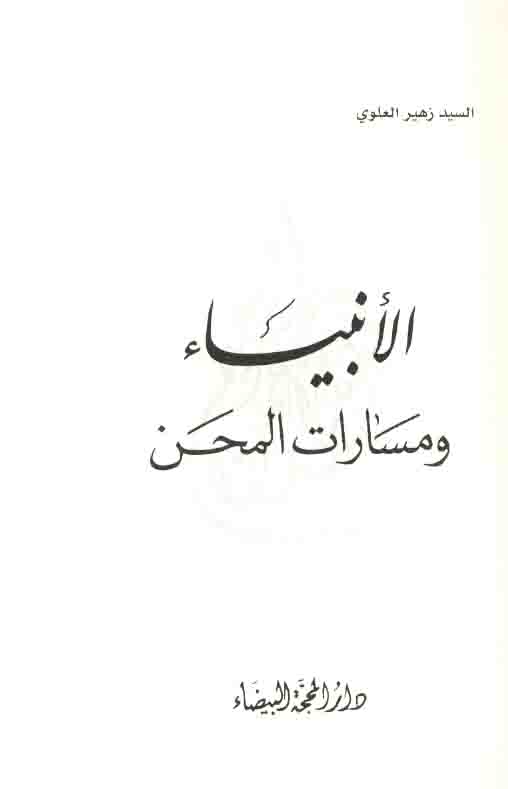 السيد زهير العلوي
الأنبياء
ومسارات المحن
دار المحجة البيضاء